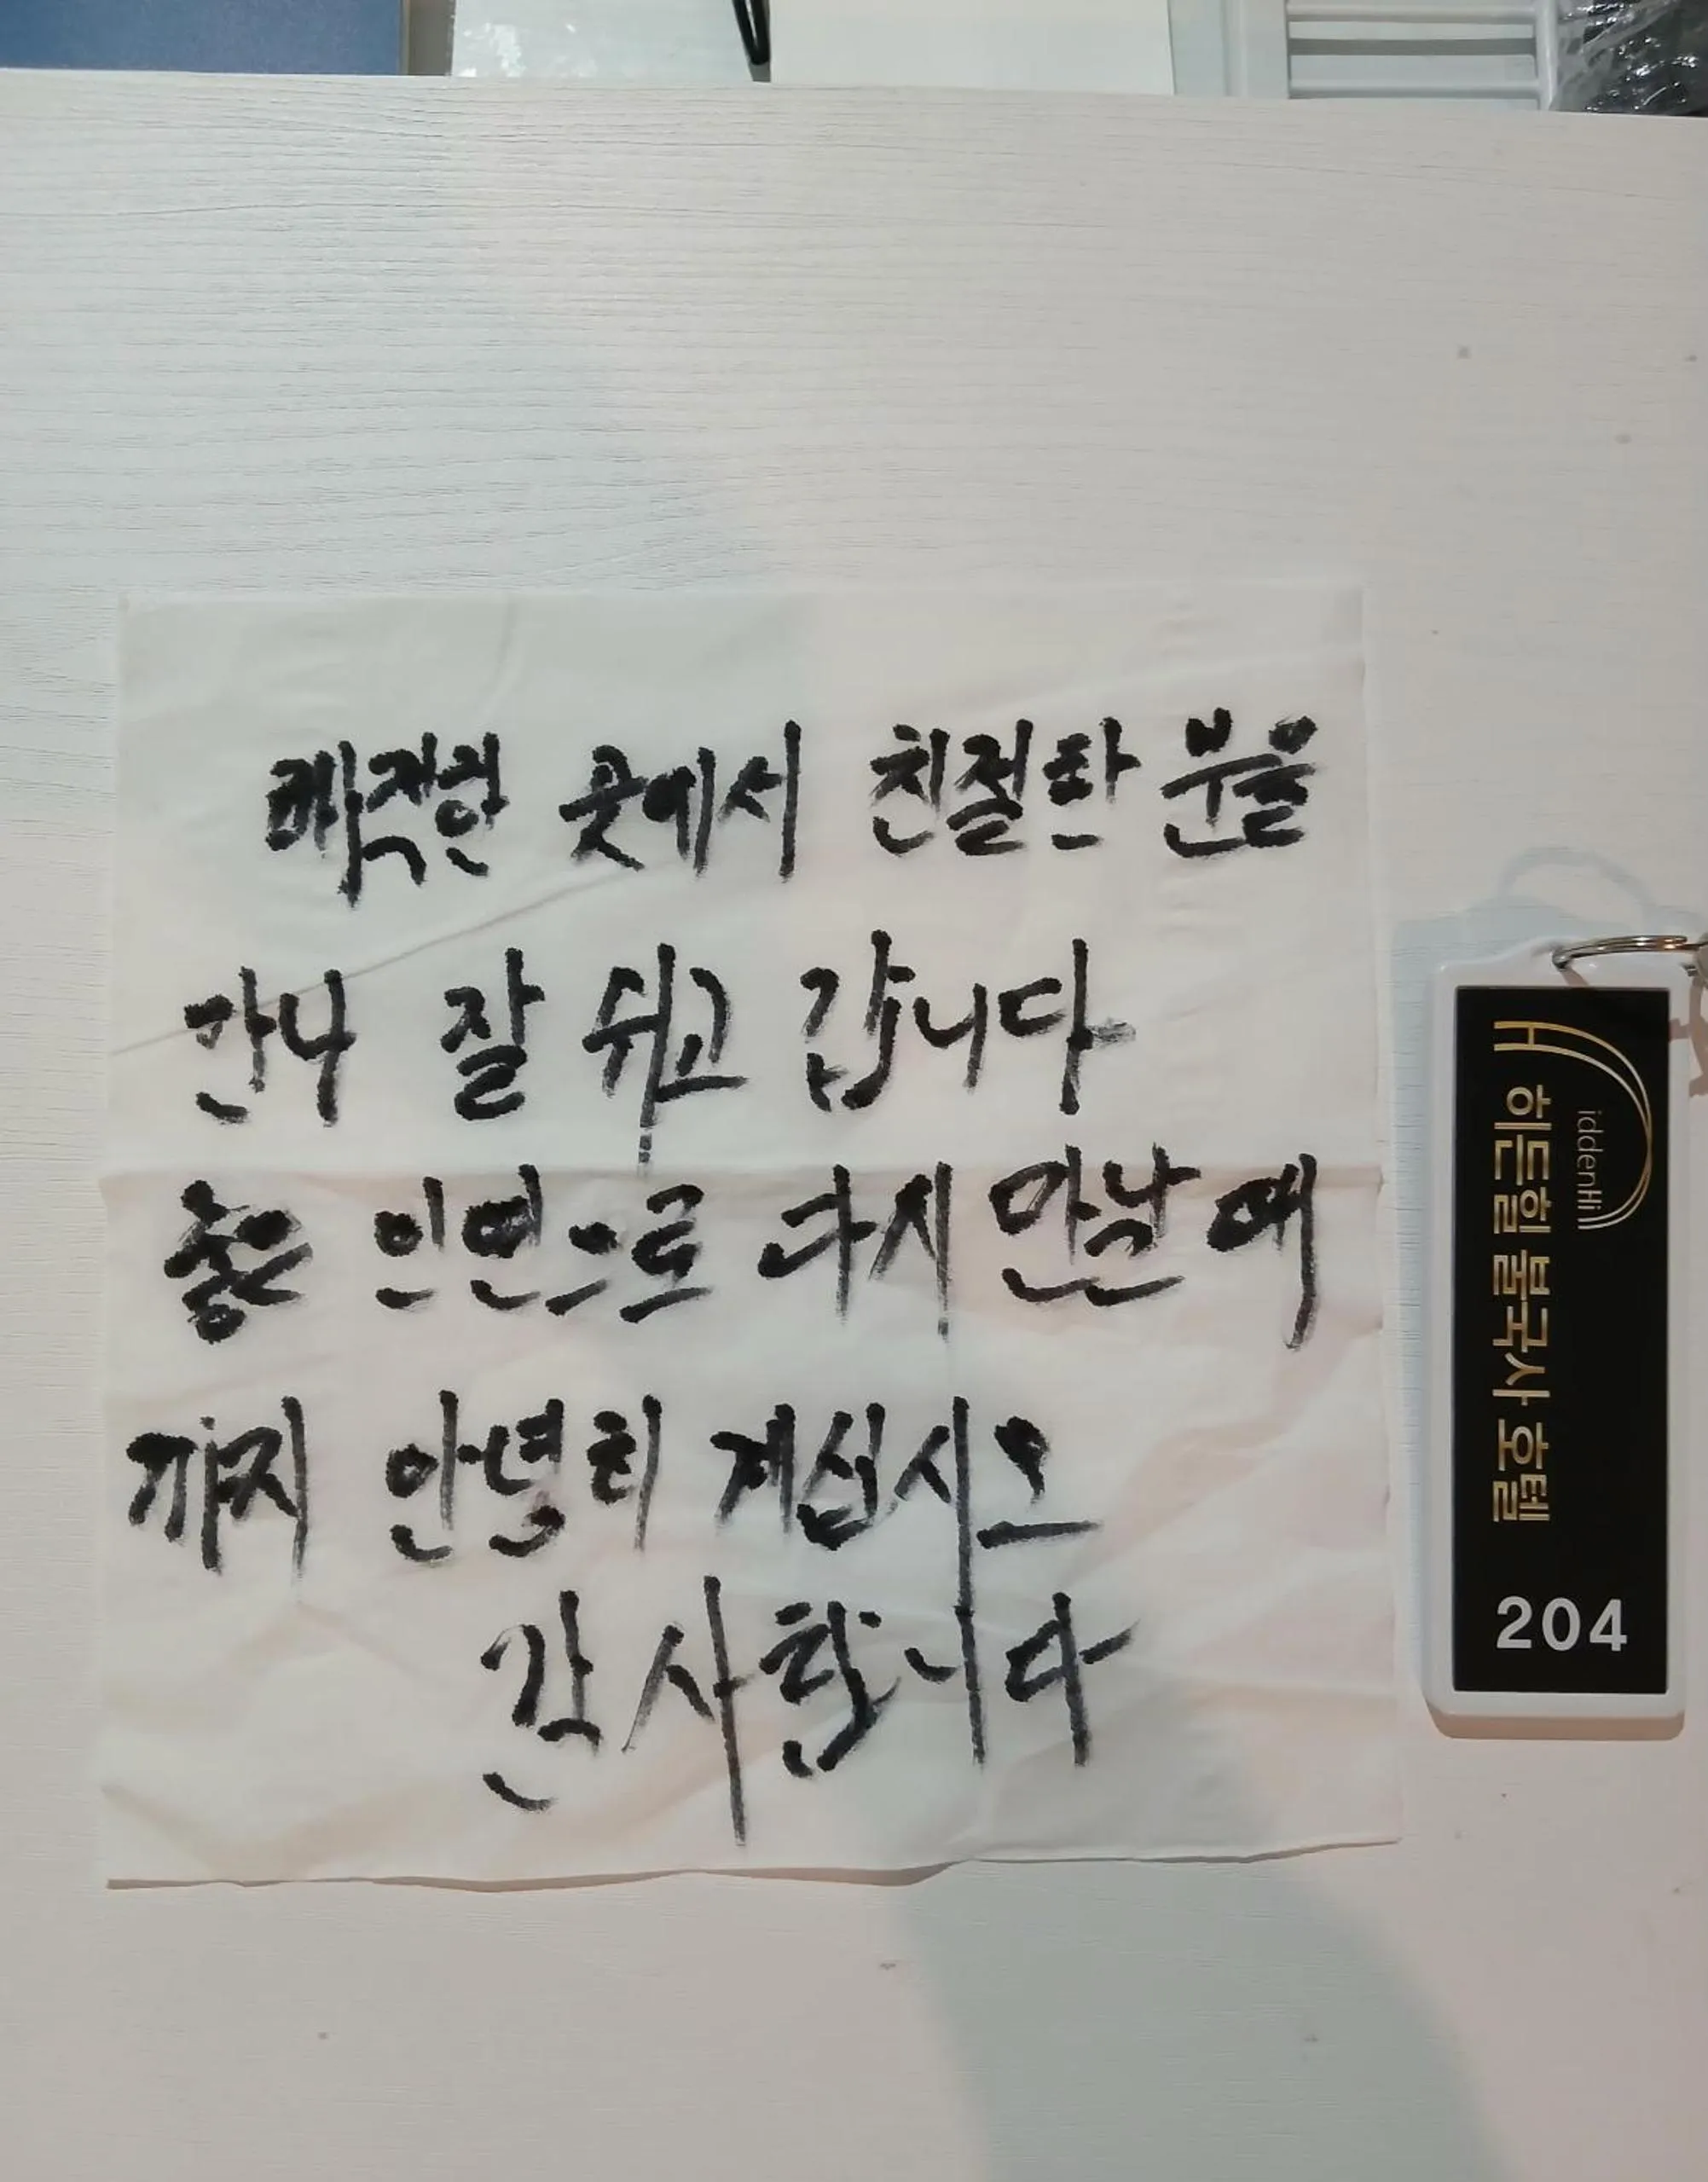 쾌적한 곳에서 친절한 분을
만나 잘 쉬고 갑니다
좋은 인연으로 다시 만날 때
까지 안녕히 계십시오
감사합니다
H iddenHi
히든힐 불국사 호텔
204